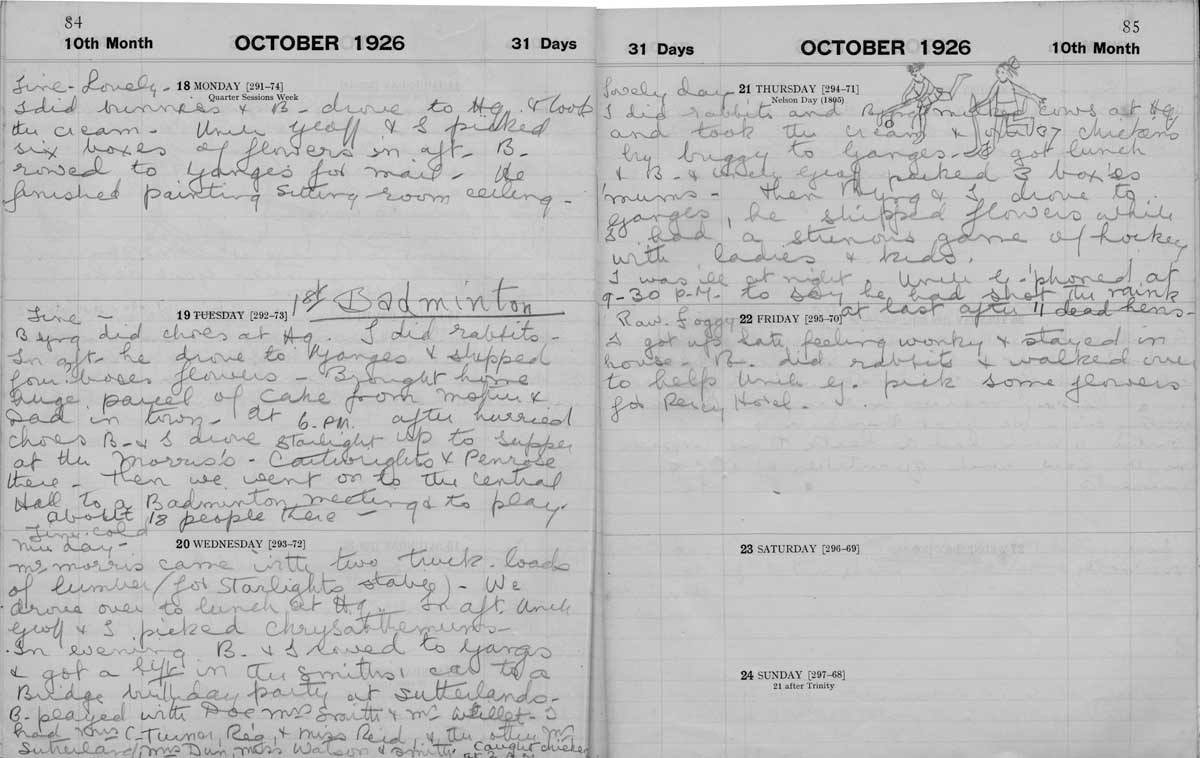 84
10th Month OCTOBER 1926 31 Days
Fine - Lovely - 18 MONDAY [291–74]
Quarter Sessions Week
I did bunnies & B - drove to Hq. & took
the cream - Uncle Geoff & I picked
six boxes of flowers in aft - B -
rowed to Ganges for mail - He
finished painting sitting-room ceiling -
1st Badminton
Fine - 19 TUESDAY [292–73]
Byng did chores at Hq. I did rabbits -
In aft - he drove to Ganges & shipped
four boxes flowers - Brought home
huge parcel of cake from mother &
Dad in town - At 6. P.M. after hurried
chores B - & I drove Starlight up to supper
at the Morris's - Cartwrights & Penrose
there - Then we went on to the Central
Hall to a Badminton meeting & to play.
about 18 people there -
Fine cold
nice day - 20 WEDNESDAY [293–72]
Mr Morris came with two truck-loads
of lumber (for Starlights stable) - We
drove over to lunch at Hq. - In aft Uncle
Geoff & I picked chrysanthemums -
In evening B. & I rowed to Ganges
& got a lift in the Smiths' car to a
Bridge birthday party at Sutherlands -
B. played with Doc Mrs Smith & Mr - I
had Mrs C. Turner, Reg, & Miss Reid, & the other Mr
Sutherland, Mrs Dun, Miss Watson & Smith caught chicken
at 2 A.M.
85
31 Days OCTOBER 1926 10th Month
Lovely day - 21 THURSDAY [294–71]
Nelson Day (1805)
I did rabbits and Byng milked cows at Hq
and took the cream & 37 chickens
by buggy to Ganges - I got lunch
& B - & Uncle Geoff picked 3 boxes
'mums - Then Byng & I drove to
Ganges, he shipped flowers while
I had a strenous game of hockey
with ladies & kids.
I was ill at night. Uncle G. 'phoned at
9-30 P.M. to say he had shot the mink
at last after 11 dead hens -
Raw. Foggy 22 FRIDAY [295–70]
I got up late feeling wonky & stayed in
house - B. did rabbits & walked over
to help Uncle G. pick some flowers
for Percy Hotel -
23 SATURDAY [296–69]
24 SUNDAY [297–68]
21 after Trinity